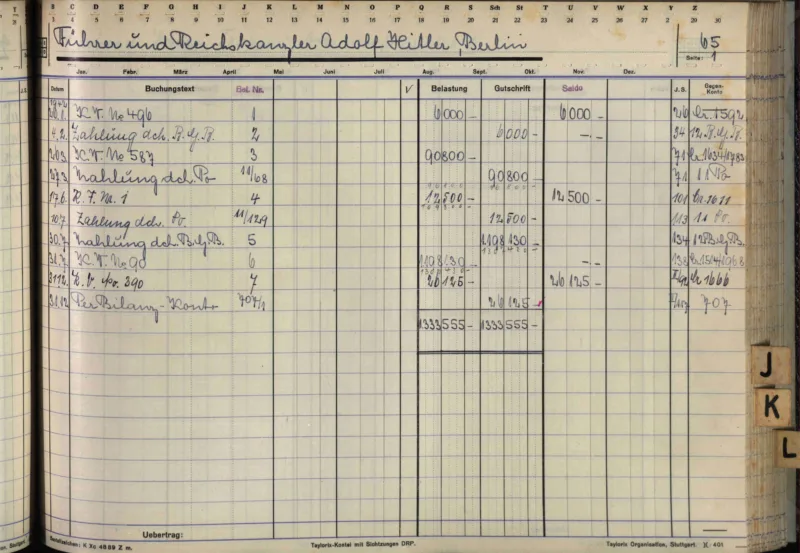 B C D E F G H I J K L M N O P Q R S Sch St T U V W X Y Z
3 4 5 6 7 8 9 10 11 12 13 14 15 16 17 18 19 20 21 22 23 24 25 26 27 28 29 30
Führer und Reichskanzler Adolf Hitler, Berlin
65
Seite: 1
Jan. Febr. März April Mai Juni Juli Aug. Sept. Okt. Nov. Dez.
Datum Buchungstext Bel. No. V Belastung Gutschrift Saldo J. S. Gegen-Konto
1942
20.1. K.V. No 496 1 6000 - 6000 - 26
4.2. Zahlung dch. B.Y.B. 2 6000 - -.- 34 12 B.Y.B.
20.3. K.V. No 587 3 90800 - 71
27.3. Zahlung dch. Po 11/68 90800 - 71 11 Po
17.6. K.V. No. 1 4 12500 - 12500 - 101
10.7. Zahlung dch. Po. 11/129 12500 - 113 11 Po.
30.7. Zahlung dch. B.Y.B. 5 1198130 - 134 12 B.Y.B.
31.7. K.V. No 90 6 1198130 - -.- 138
31.12. K.V. No. 390 7 26125 - 26125 - 1666
31.12. Per Bilanz-Konto 707/1 26125 - 707
1333555 - 1333555 -
J
K
L
Uebertrag:
K Xc 4589 Z m.
Taylorix-Kontei mit Sichtzungen DRP.
Taylorix Organisation, Stuttgart. 401